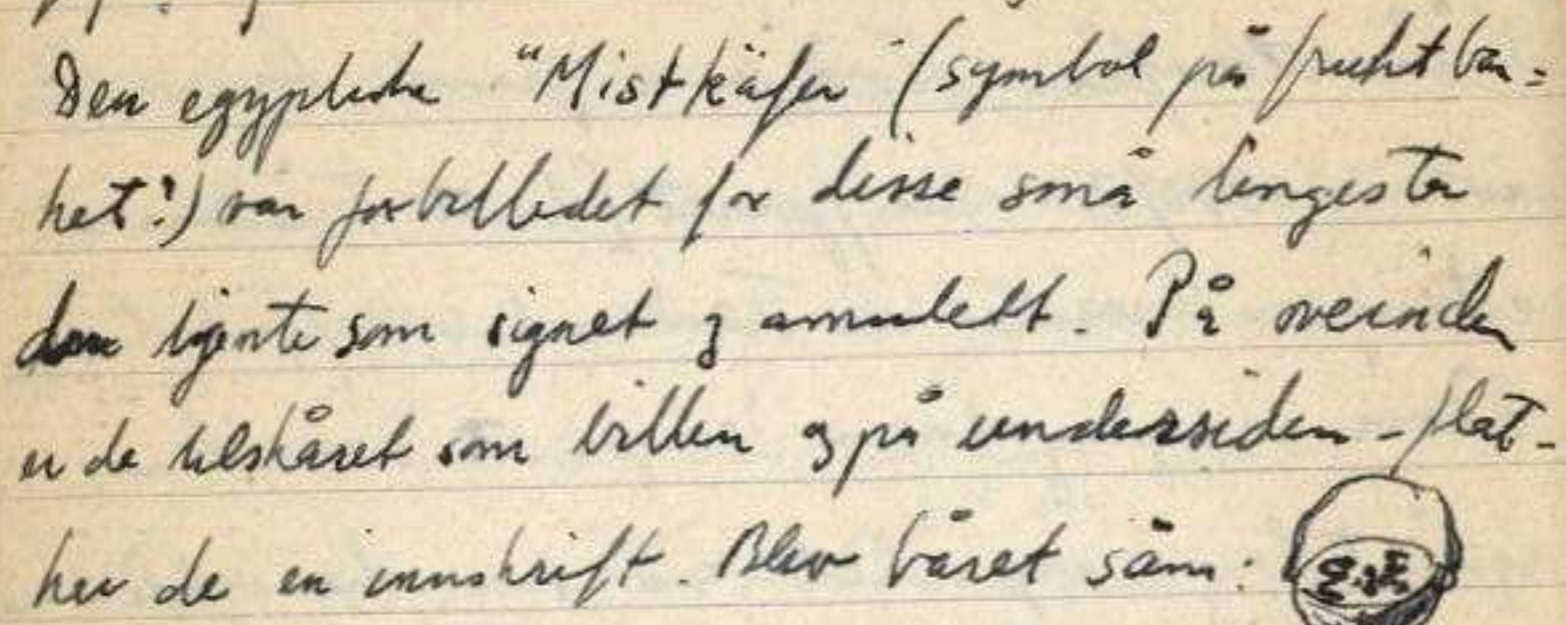 Den egyptiske "Mistkäfer" (symbol på fruchtbar-
het!) var forbilledet for disse små tingester
den tjente som signet og amulett. På oversiden
er de utskåret som billen og på undersiden - flat -
her de en innskrift. Blev båret som: